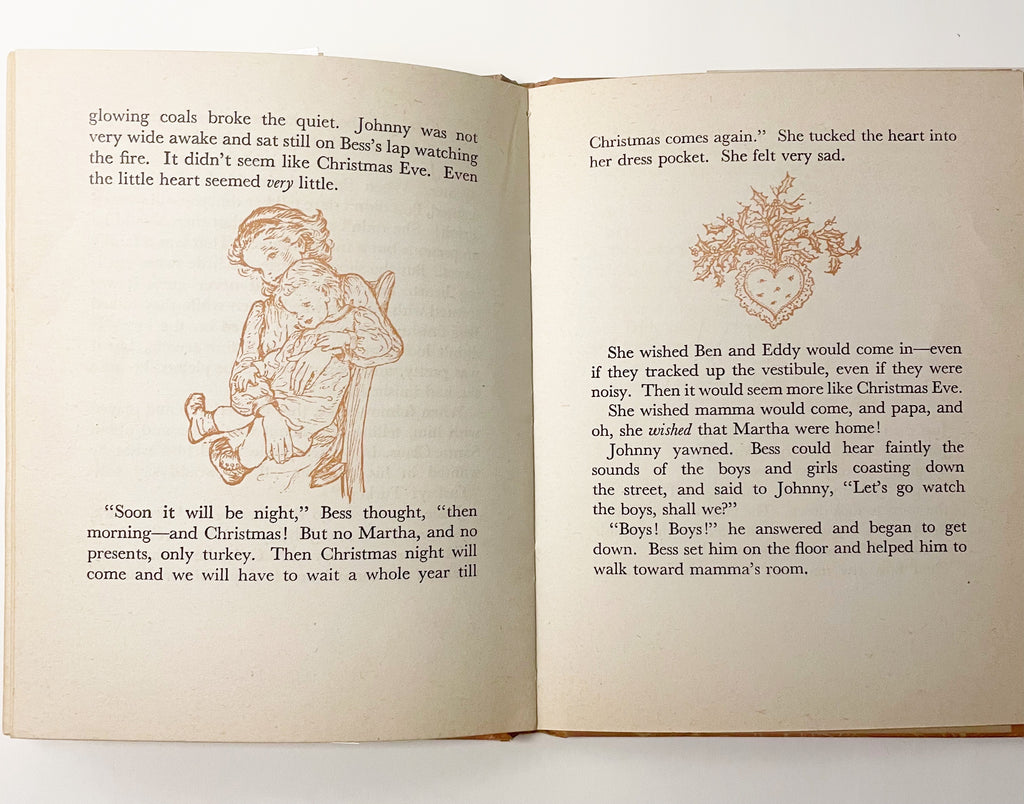 glowing coals broke the quiet. Johnny was not
very wide awake and sat still on Bess's lap watching
the fire. It didn't seem like Christmas Eve. Even
the little heart seemed very little.
"Soon it will be night," Bess thought, "then
morning—and Christmas! But no Martha, and no
presents, only turkey. Then Christmas night will
come and we will have to wait a whole year till
Christmas comes again." She tucked the heart into
her dress pocket. She felt very sad.
She wished Ben and Eddy would come in—even
if they tracked up the vestibule, even if they were
noisy. Then it would seem more like Christmas Eve.
She wished mamma would come, and papa, and
oh, she wished that Martha were home!
Johnny yawned. Bess could hear faintly the
sounds of the boys and girls coasting down
the street, and said to Johnny, "Let's go watch
the boys, shall we?"
"Boys! Boys!" he answered and began to get
down. Bess set him on the floor and helped him to
walk toward mamma's room.